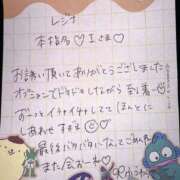 レジナ
本指名♡Iさま♡
お誘い頂いてありがとうございました
オプションでドキドキしながら到着ー♡
ずーっとイチャイチャしてて ほんとに
しあわせすぎる♡
最後バタバタになっててごめんね
また会おーね♡